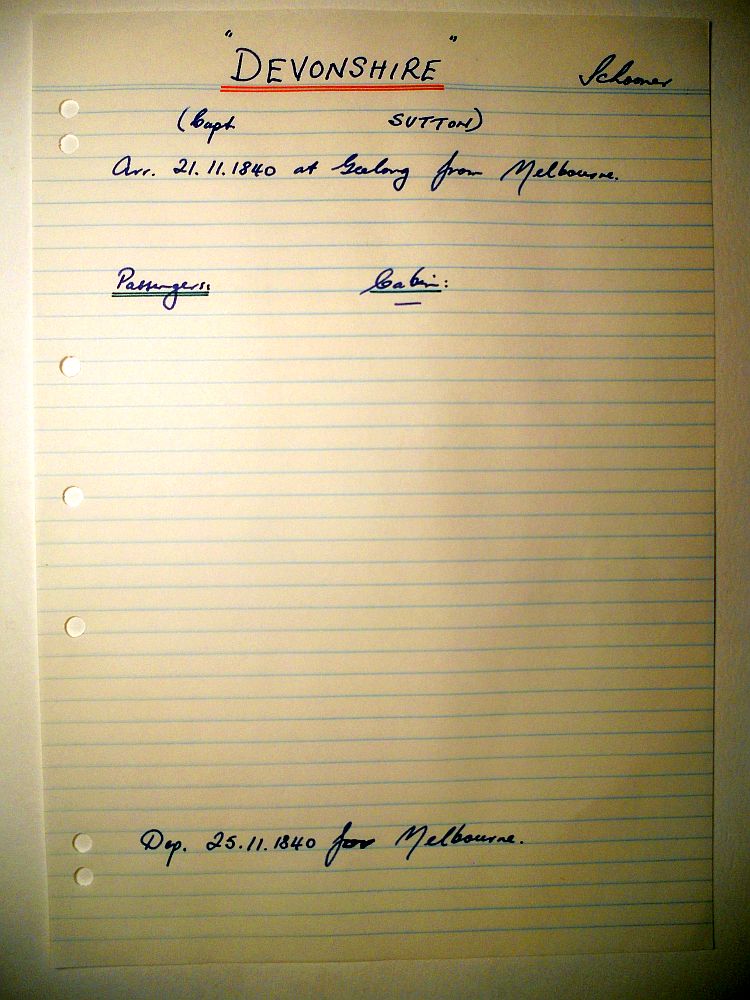 "DEVONSHIRE" Schooner
(Capt SUTTON)
Arr. 21.11.1840 at Geelong from Melbourne.
Passengers: Cabin:
Dep. 25.11.1840 for Melbourne.